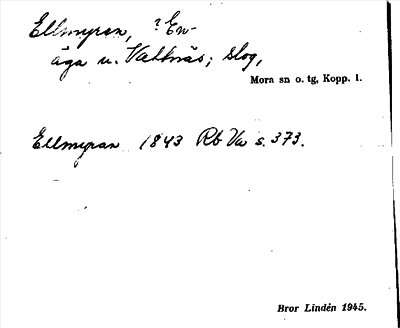 Ellmyren, ? En-
äga u. Vattnäs; slog,
Mora sn o. tg, Kopp. l.
Ellmyran 1843 Rb Va s. 373.
Bror Lindén 1945.